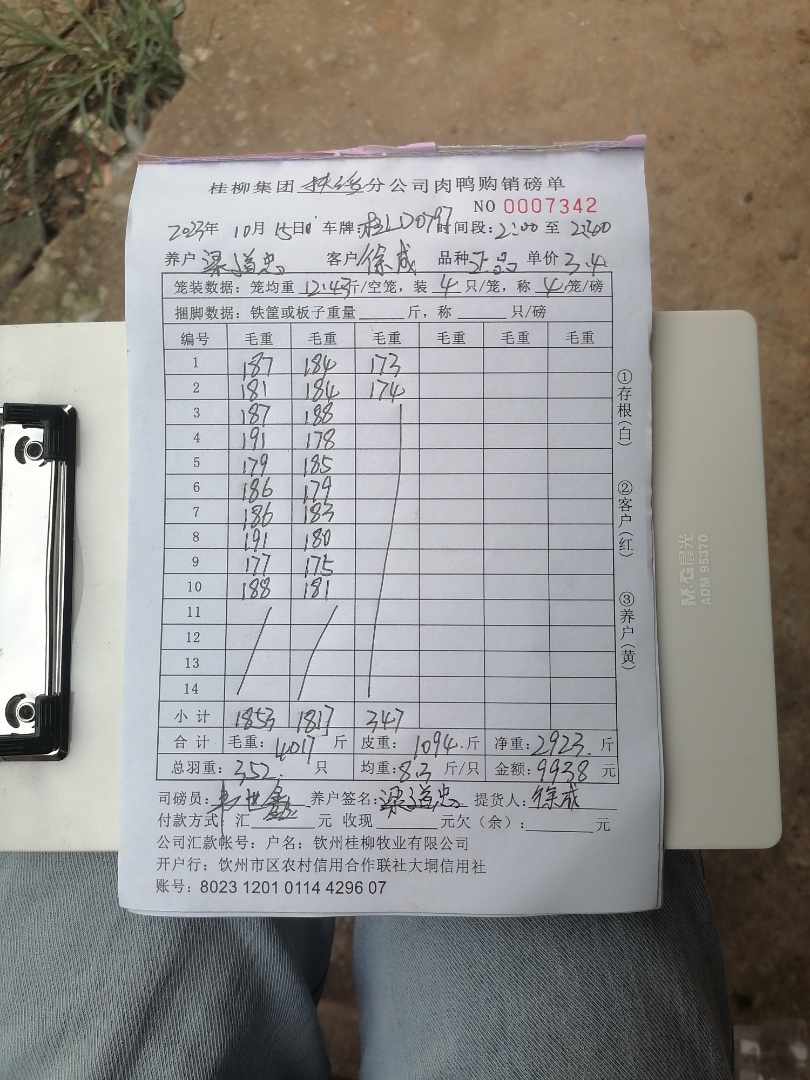 桂柳集团 扶绥 分公司肉鸭购销磅单
NO 0007342
2023年 10月 15日 车牌: 桂LD0797 时间段: 2:00 至 2:00
养户 梁道忠 客户 徐成 品种 单价 3.4
笼装数据: 笼均重 12.43 斤/空笼, 装 4 只/笼, 称 4 笼/磅
捆脚数据: 铁筐或板子重量 斤, 称 只/磅
编号 毛重 毛重 毛重 毛重 毛重 毛重
1 187 184 173
2 181 184 174
3 187 188
4 191 178
5 179 185
6 186 179
7 186 183
8 191 180
9 177 175
10 188 181
11
12
13
14
小计 1853 1817 347
合计 毛重: 4017 斤 皮重: 1094 斤 净重: 2923 斤
总羽重: 352 只 均重: 8.3 斤/只 金额: 9938 元
司磅员: 养户签名: 梁道忠 提货人: 徐成
付款方式: 汇 元 收现 元欠(余): 元
公司汇款帐号: 户名: 钦州桂柳牧业有限公司
开户行: 钦州市区农村信用合作联社大垌信用社
账号: 8023 1201 0114 4296 07
①存根(白)
②客户(红)
③养户(黄)
M&G 晨光
ADM 95370